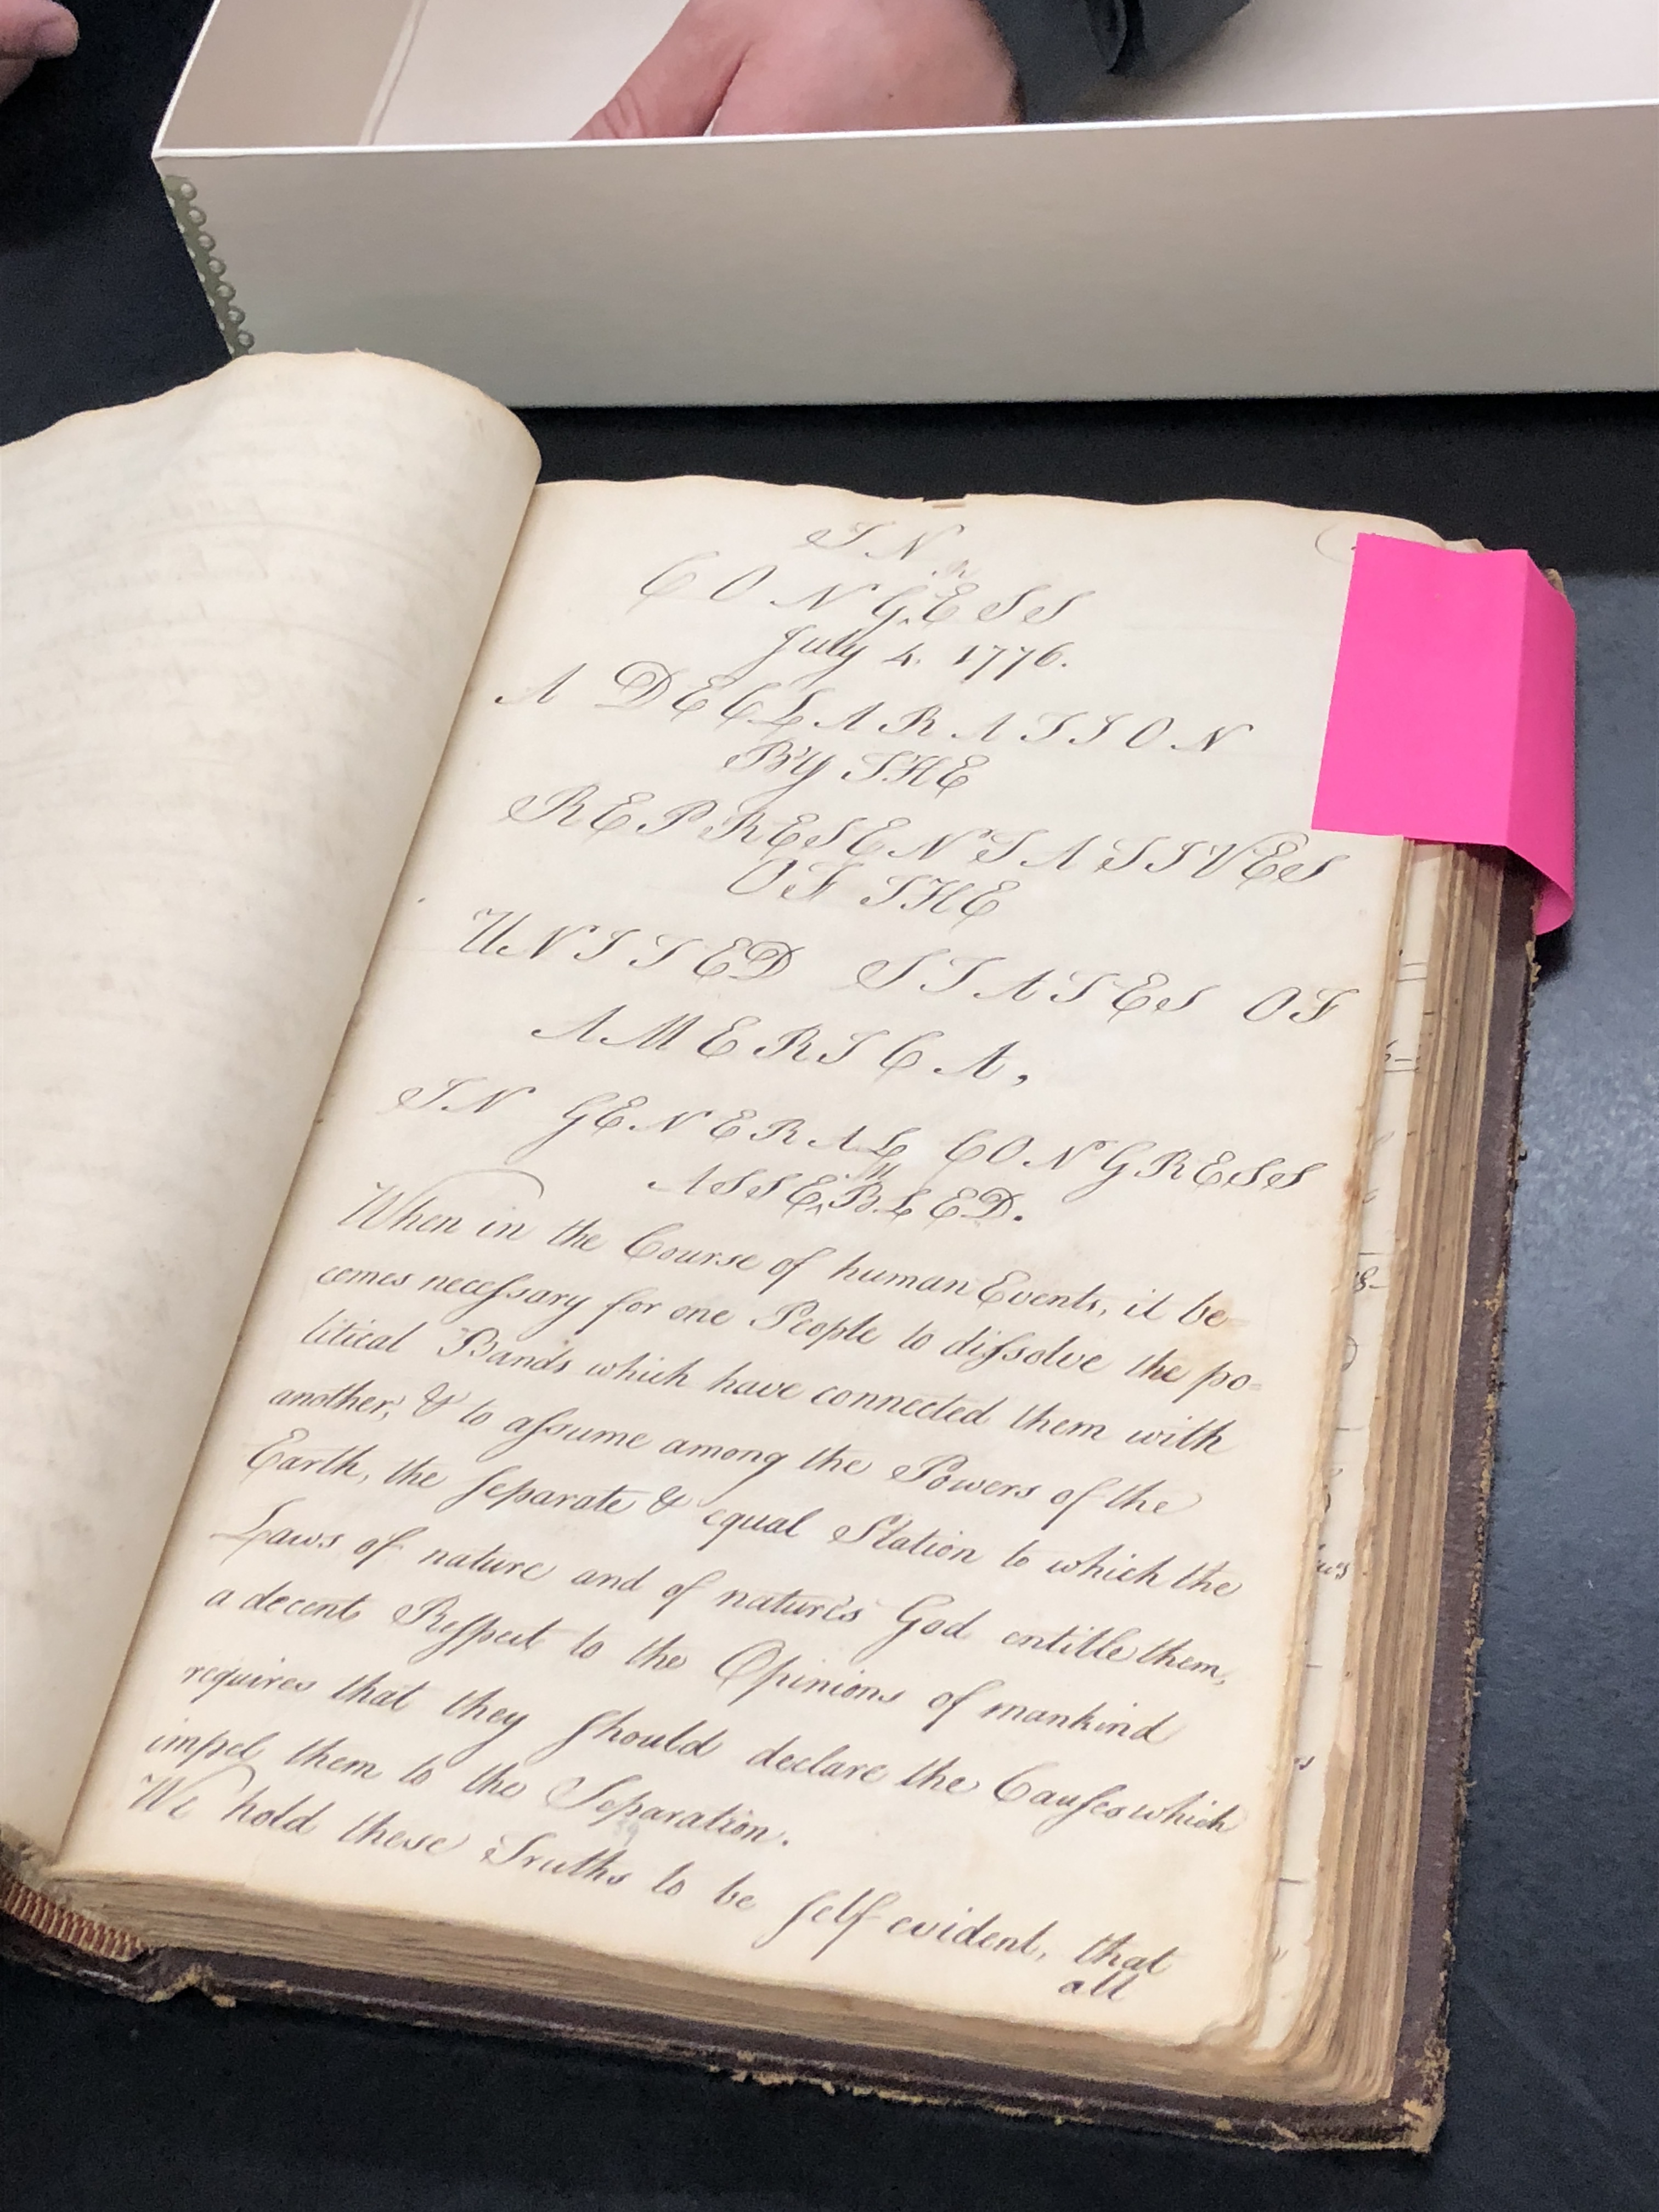 IN
CONGRESS
July 4. 1776.
A DECLARATION
BY THE
REPRESENTATIVES
OF THE
UNITED STATES OF
AMERICA,
IN GENERAL CONGRESS
ASSEMBLED.
When in the Course of human Events, it be-
comes necessary for one People to dissolve the po-
litical Bands which have connected them with
another, & to assume among the Powers of the
Earth, the separate & equal Station to which the
Laws of nature and of nature's God entitle them,
a decent Respect to the Opinions of mankind
requires that they should declare the Causes which
impel them to the Separation.
We hold these Truths to be self evident, that
all